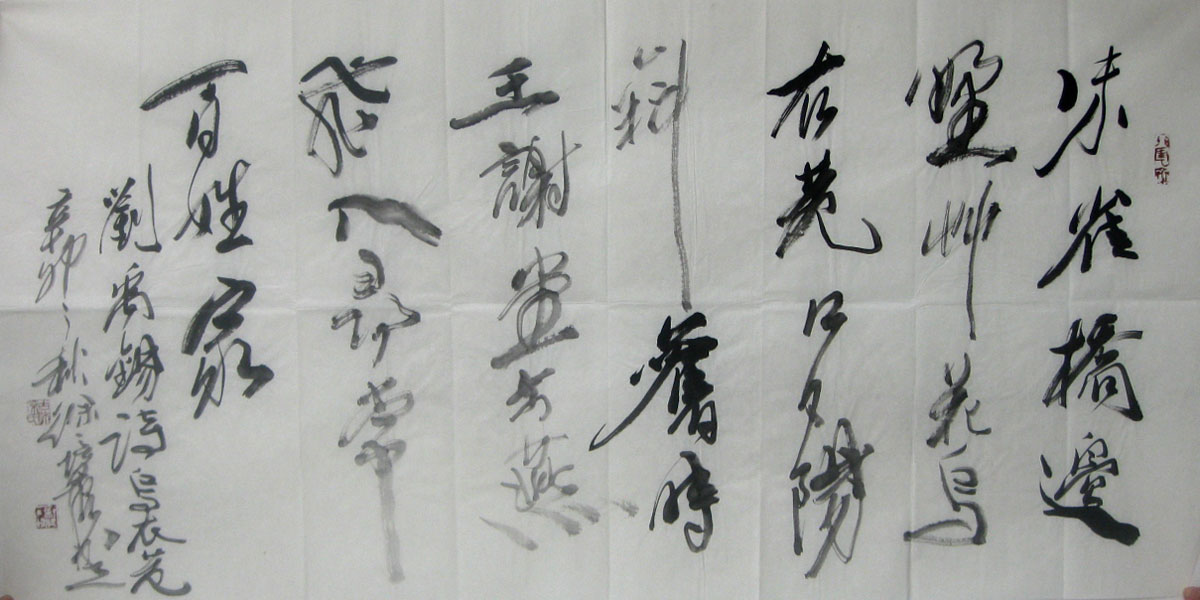 朱雀橋邊
野艸花烏
衣巷口夕陽
斜舊時
王謝堂前燕
飛入尋常
百姓家
劉禹錫詩烏衣巷
辛卯之秋徐